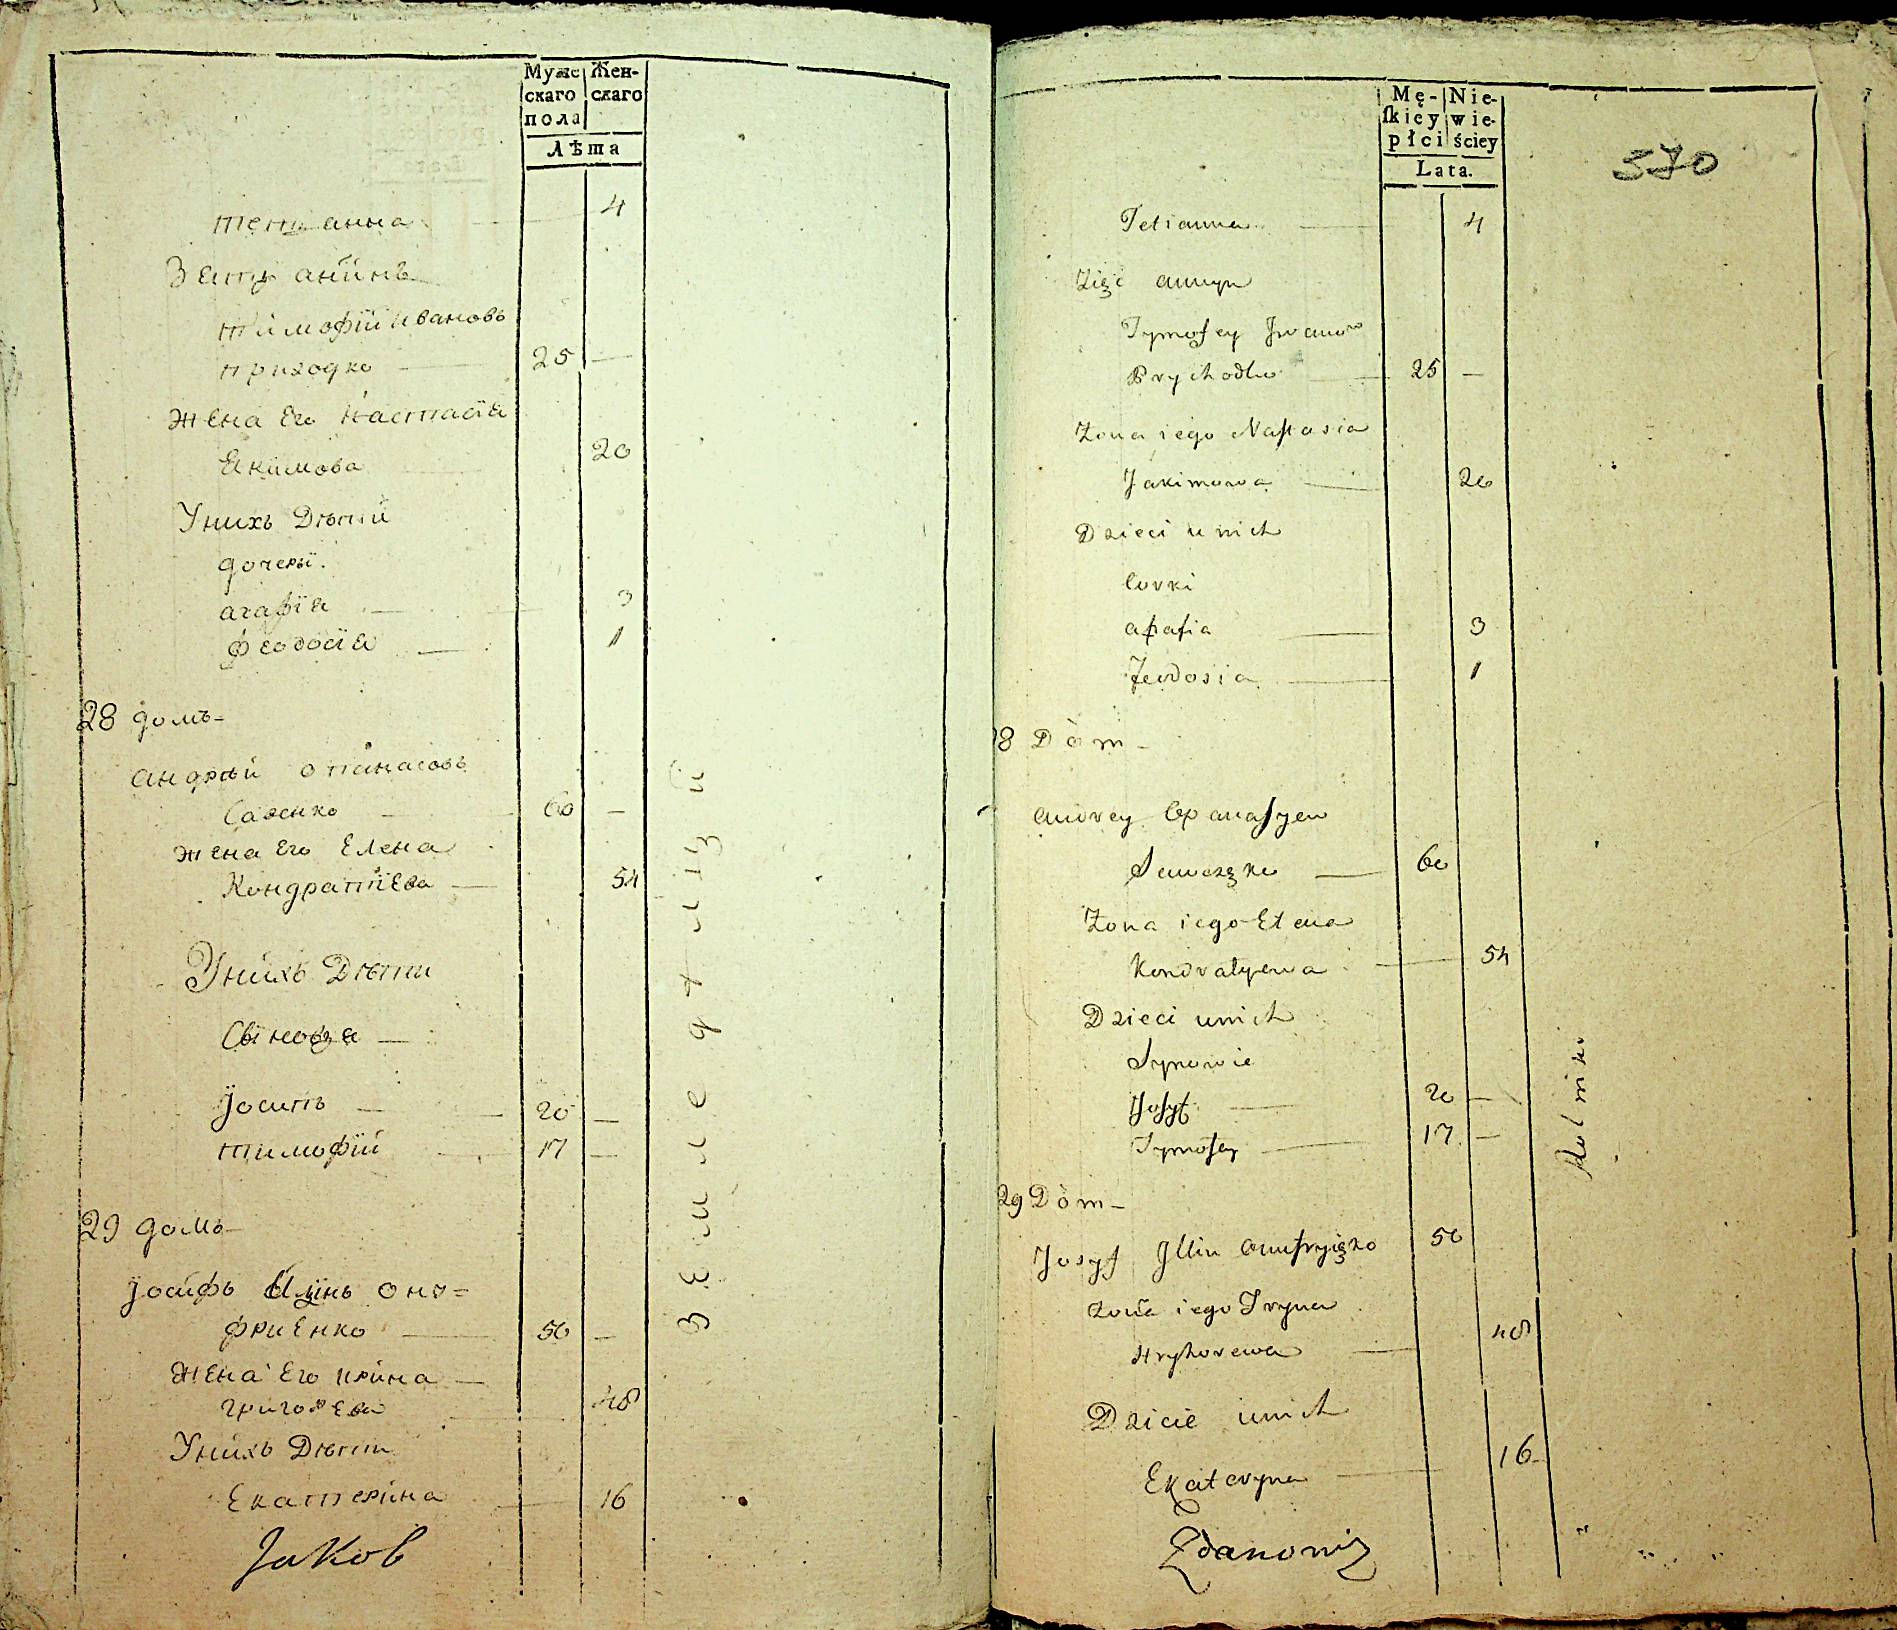 Мужс Жен-
скаго скаго
пола
Лѣта
тетианна 4
Зять анинъ
тимофїй Ивановъ
приходко 25 —
жена Его Настасїя
Екимова 20
Унихъ Дѣтий
дочеры.
агафїя 3
феодосїя 1
28 домъ-
андрѣй опанасовъ
60 —
жена Его Елена
Кондратїева 54
Унихъ Дѣти
Сыновья
Іосипъ 20 —
тимофїй 17 —
29 домъ-
Іосифъ Илїинъ ону=
фриЕнко 50 —
жена Его ирина
григорЕва 48
Унихъ Дѣти
Екатерина 16
Jakob
земледѣліцй
Mę- Nie-
ſkiey wie-
płci ściey
Lata.
570
Tetianna 4
Zięć annyn
Tymofey Jwanow
Prychodko 25 —
Zona iego Nastasia
Jakimowa 20
Dzieci u nich
Corki
3
Fewdosia 1
28 Dòm-
Andrey Opanasyew
60
Zona iego Elena
Kondratyewa 54
Dzieci unich
Synowie
Josyf 20 —
Tymofey 17 —
29 Dòm-
Josyf Jllin Onufryięko 50
Zona iego Iryna
Hryhorewa 48
Dzicie unich
Ekateryna 16
Zdanowicz
Rolniki